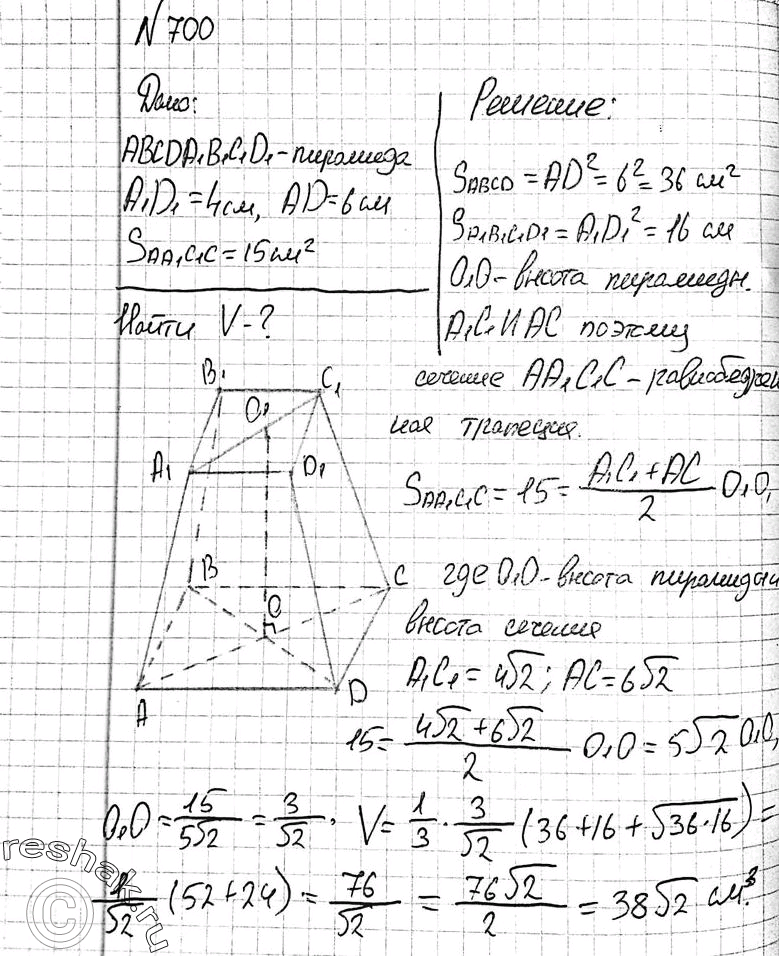 N 700
Дано:
ABCDA₁B₁C₁D₁ - пирамида
A₁D₁ = 4 см, AD = 6 см
S_AA₁C₁C = 15 см²
Найти V - ?
Решение:
S_ABCD = AD² = 6² = 36 см²
S_A₁B₁C₁D₁ = A₁D₁² = 16 см
O₁O - высота пирамиды.
A₁C₁ ∥ AC поэтому
сечение AA₁C₁C - равнобедрен
ная трапеция.
S_AA₁C₁C = 15 = (A₁C₁ + AC)/2 O₁O,
где O₁O - высота пирамиды и
высота сечения
A₁C₁ = 4√2 ; AC = 6√2
15 = (4√2 + 6√2)/2 O₁O = 5√2 O₁O,
O₁O = 15/(5√2) = 3/√2 . V = 1/3 · 3/√2 (36 + 16 + √(36·16)) =
1/√2 (52 + 24) = 76/√2 = 76√2/2 = 38√2 см³.
B₁ C₁
O₁
A₁ D₁
B C
O
A D
reshak.ru
©